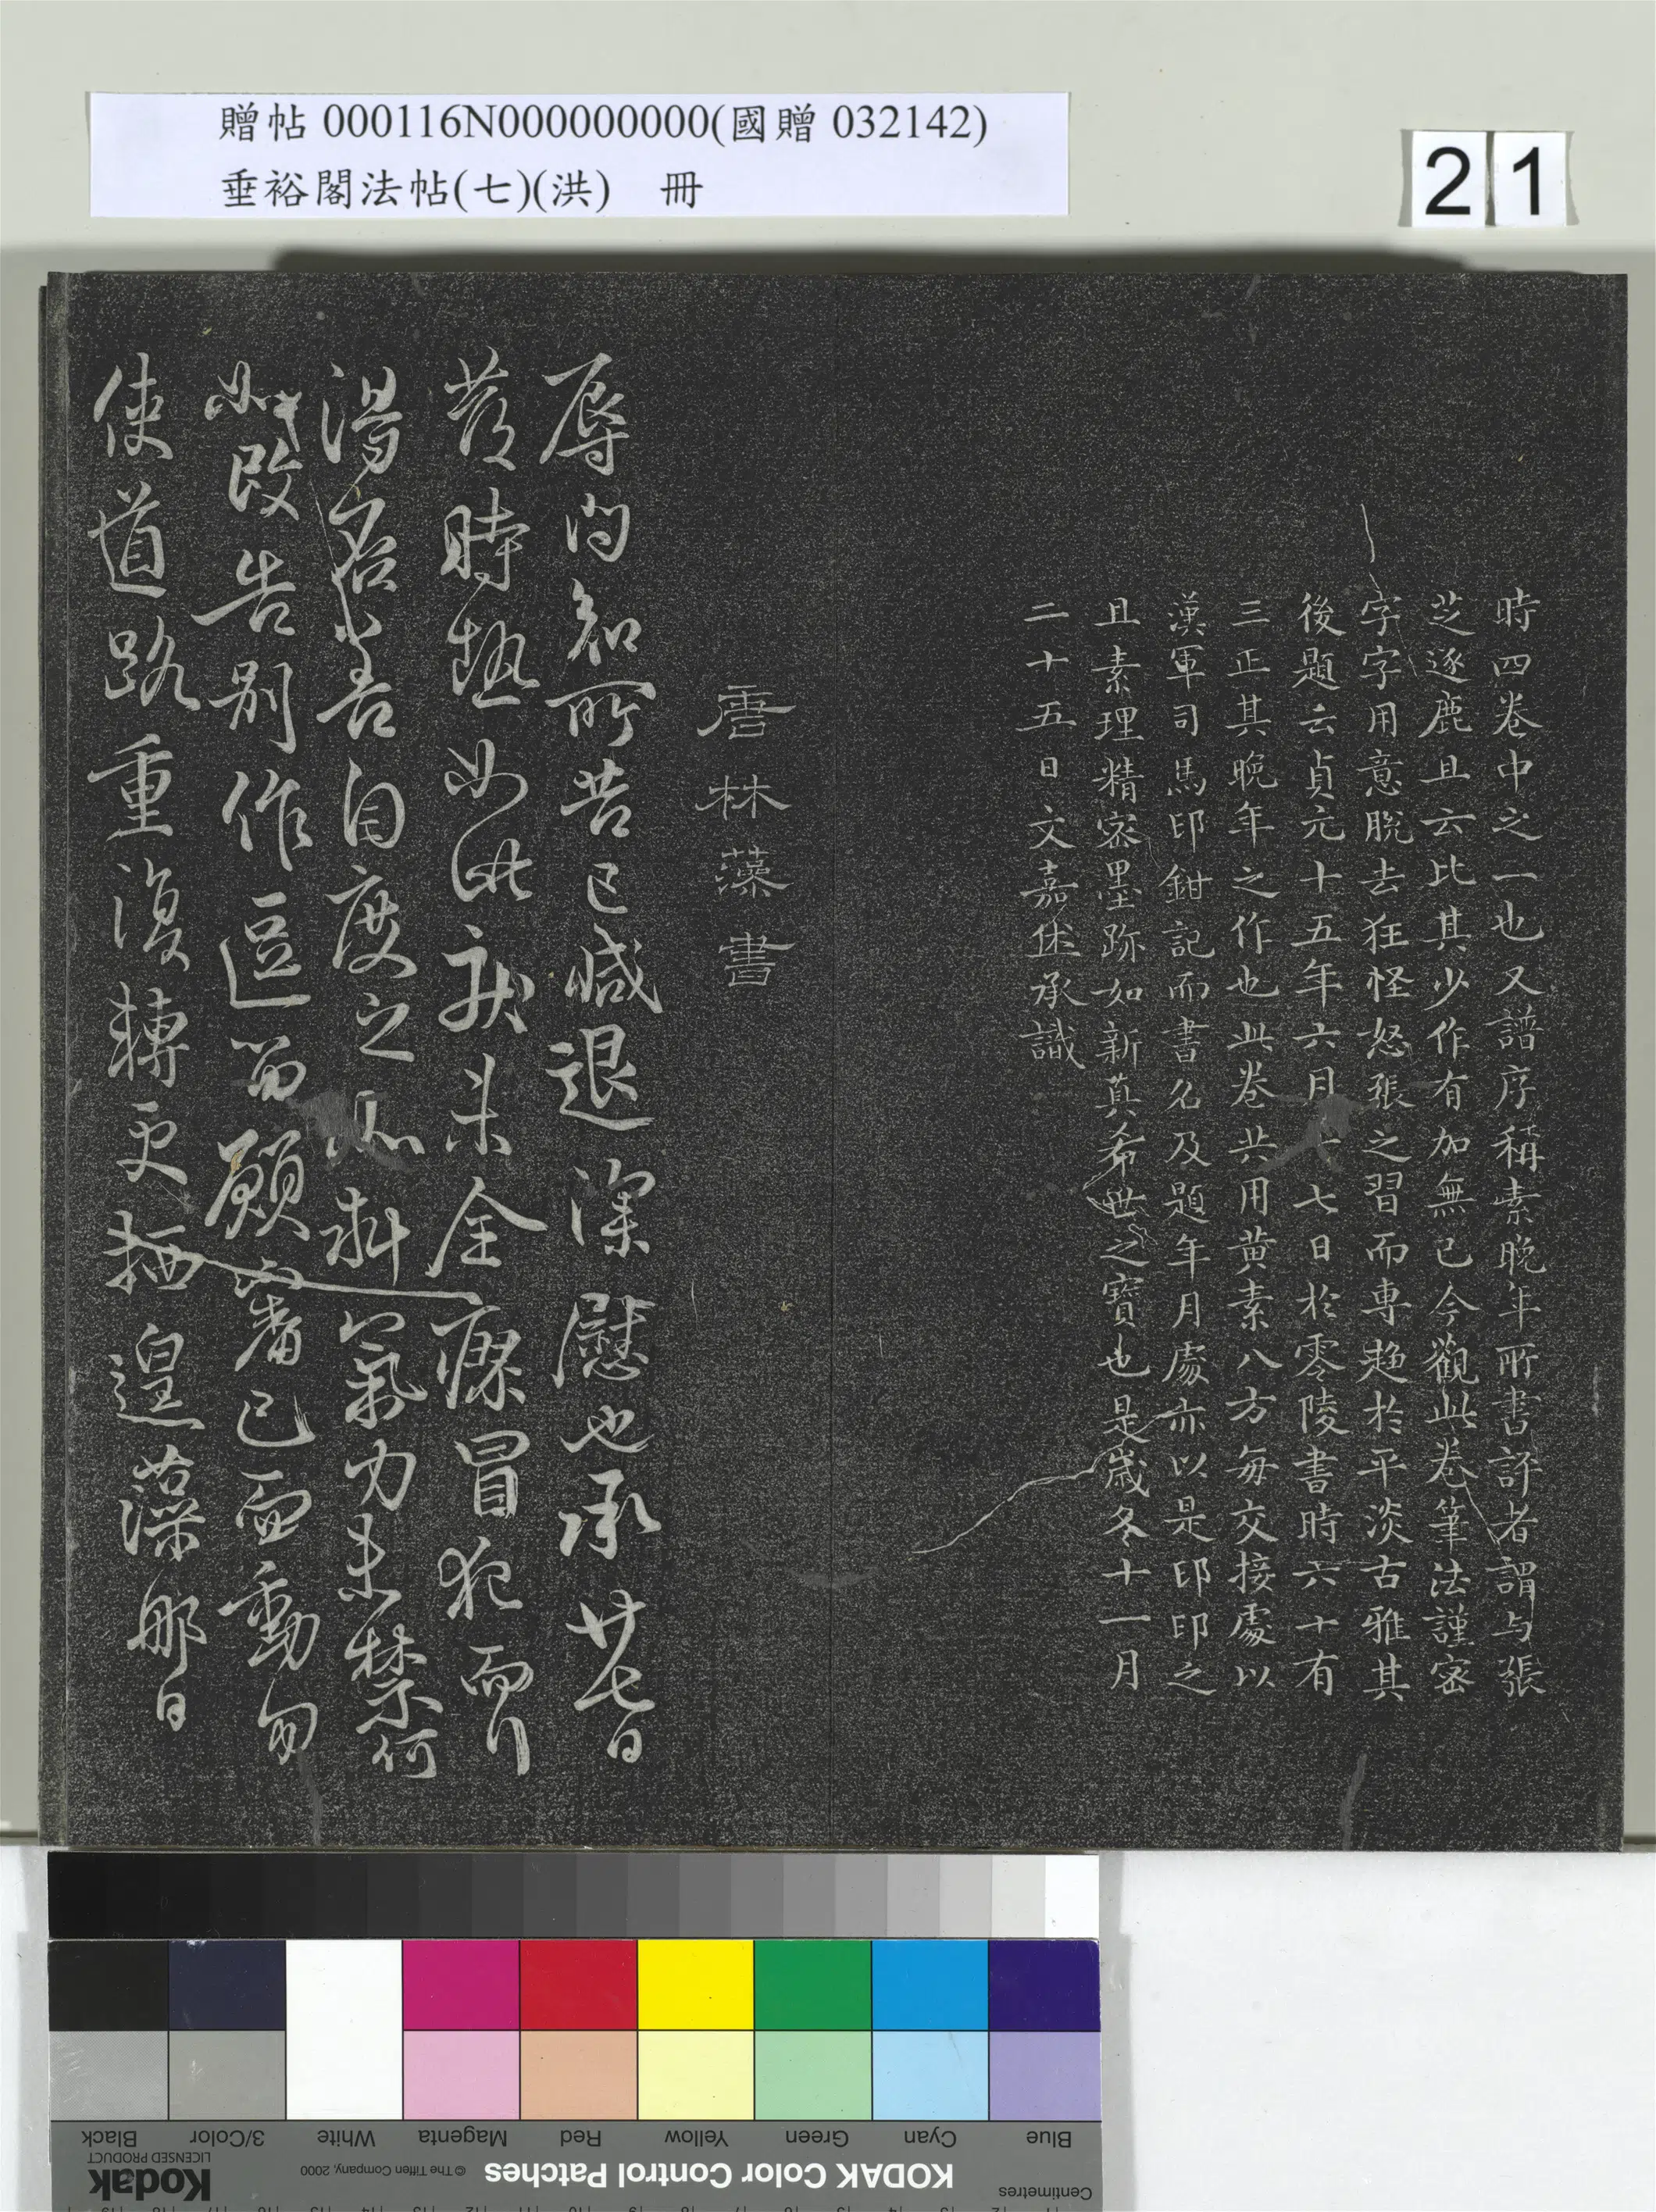 贈帖 000116N000000000(國贈 032142)
垂裕閣法帖(七)(洪) 冊
21
時四卷中之一也又譜序稱素晚年所書評者謂与張
芝逐鹿且云比其少作有加無已今觀此卷筆法謹密
字字用意脫去狂怪怒張之習而專趍於平淡古雅其
後題云貞元十五年六月十七日於零陵書時六十有
三正其晚年之作也此卷共用黄素八方每交接處以
漢軍司馬印鉗記而書名及題年月處亦以是印印之
且素理精密墨跡如新真希世之寶也是歲冬十一月
二十五日文嘉休承識
唐林藻書
辱问知所苦已減退深慰也承廿七日
發時熱如此疾未全療冒犯而行
湯若善自度之恐斟氣力未禁何
如改告別作逗留願審已而動勿
使道路重復轉更栖遑藻那日
Blue
Cyan
Green
Yellow
Red
Magenta
White
3/Color
Black
KODAK Color Control Patches
© The Tiffen Company, 2000
Kodak
LICENSED PRODUCT
Centimetres